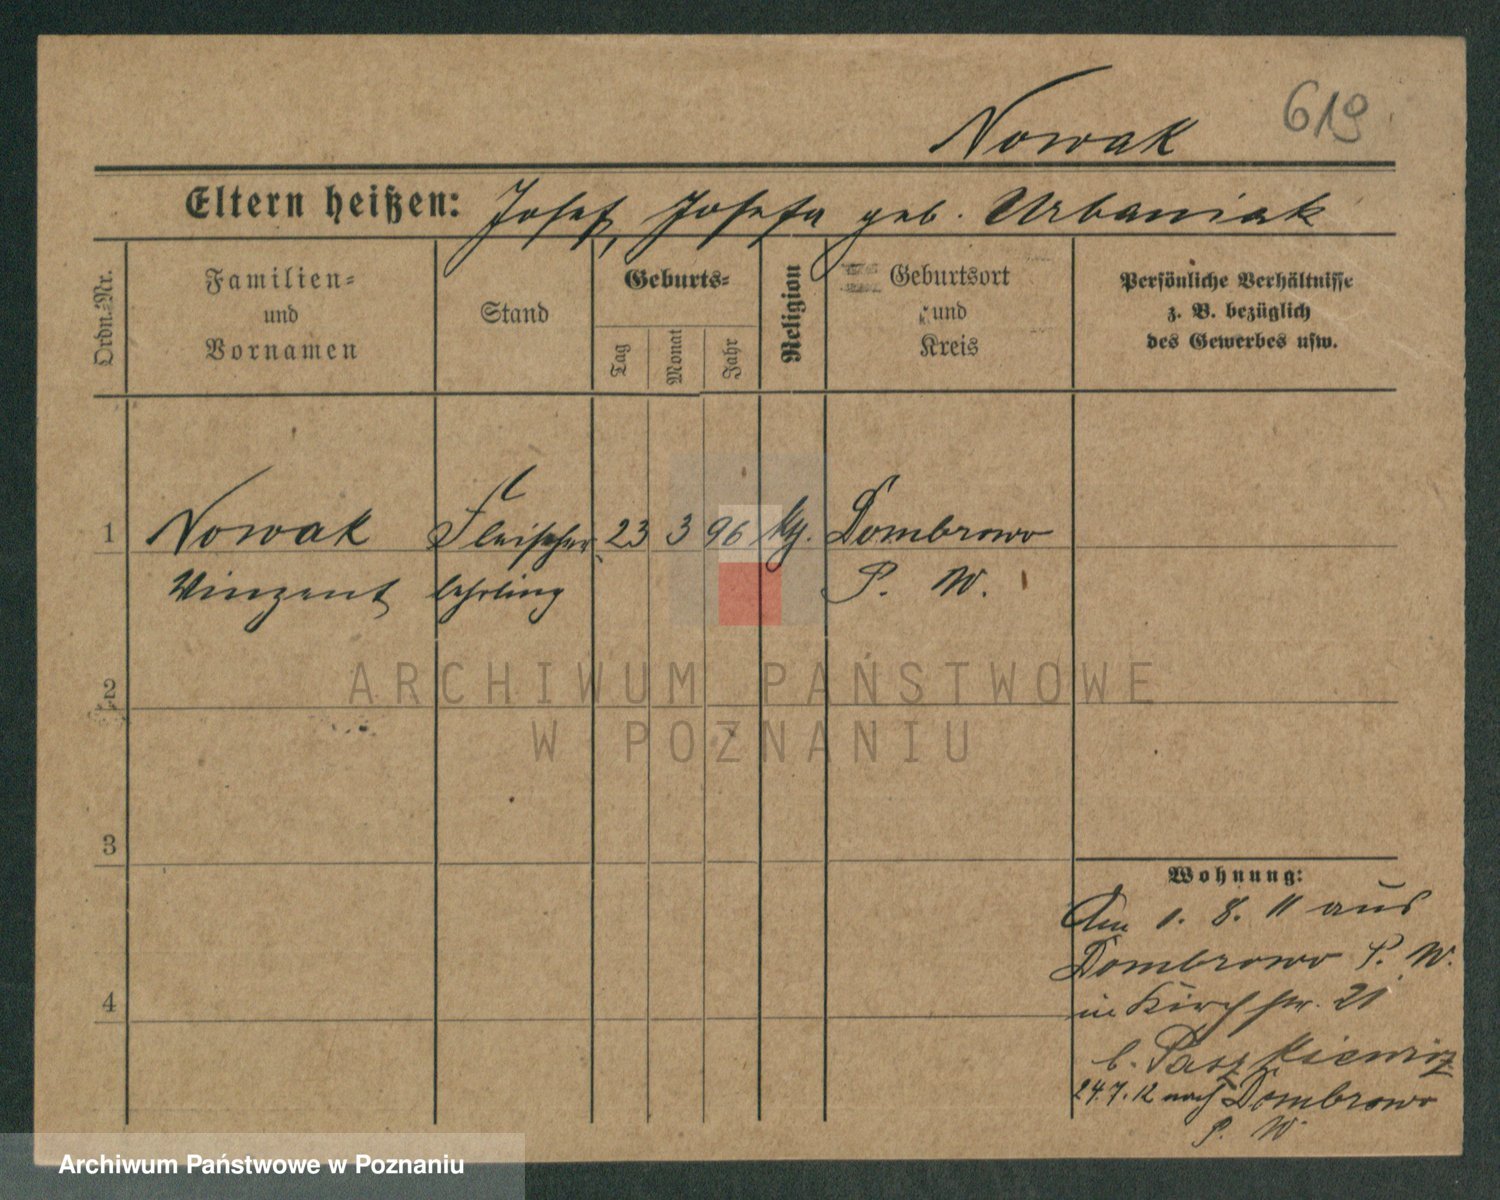 Nowak 619
Eltern heißen: Josef, Josefa geb. Urbaniak
Ordn.-Nr.
Familien-
und
Vornamen
Stand
Geburts-
Tag
Monat
Jahr
Religion
Geburtsort
und
Kreis
Persönliche Verhältnisse
z. B. bezüglich
des Gewerbes usw.
1 Nowak Fleischer 23 3 96 kg. Dombrowo
Vinzent lehrling P. W.
ARCHIWUM PAŃSTWOWE
W POZNANIU
2
3
4
Wohnung:
Am 1. 8. 11 aus
Dombrowo P. W.
in Kirchstr. 21
b. Paszkiewicz
24.7.12 nach Dombrowo
P. W.
Archiwum Państwowe w Poznaniu